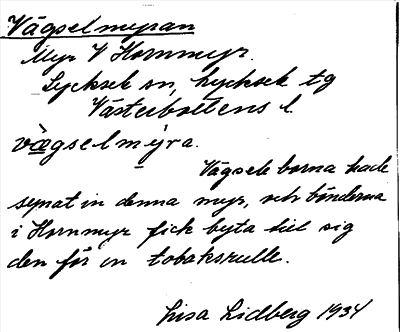 Vägselmyran
Myr V Hornmyr.
Lycksele sn, Lycksele tg
Västerbottens l.
vä̀gselmýra.
Vägsele borna hade
synat in denna myr, och bönderna
i Hornmyr fick byta till sig
den för en tobaksrulle.
Lisa Lidberg 1934